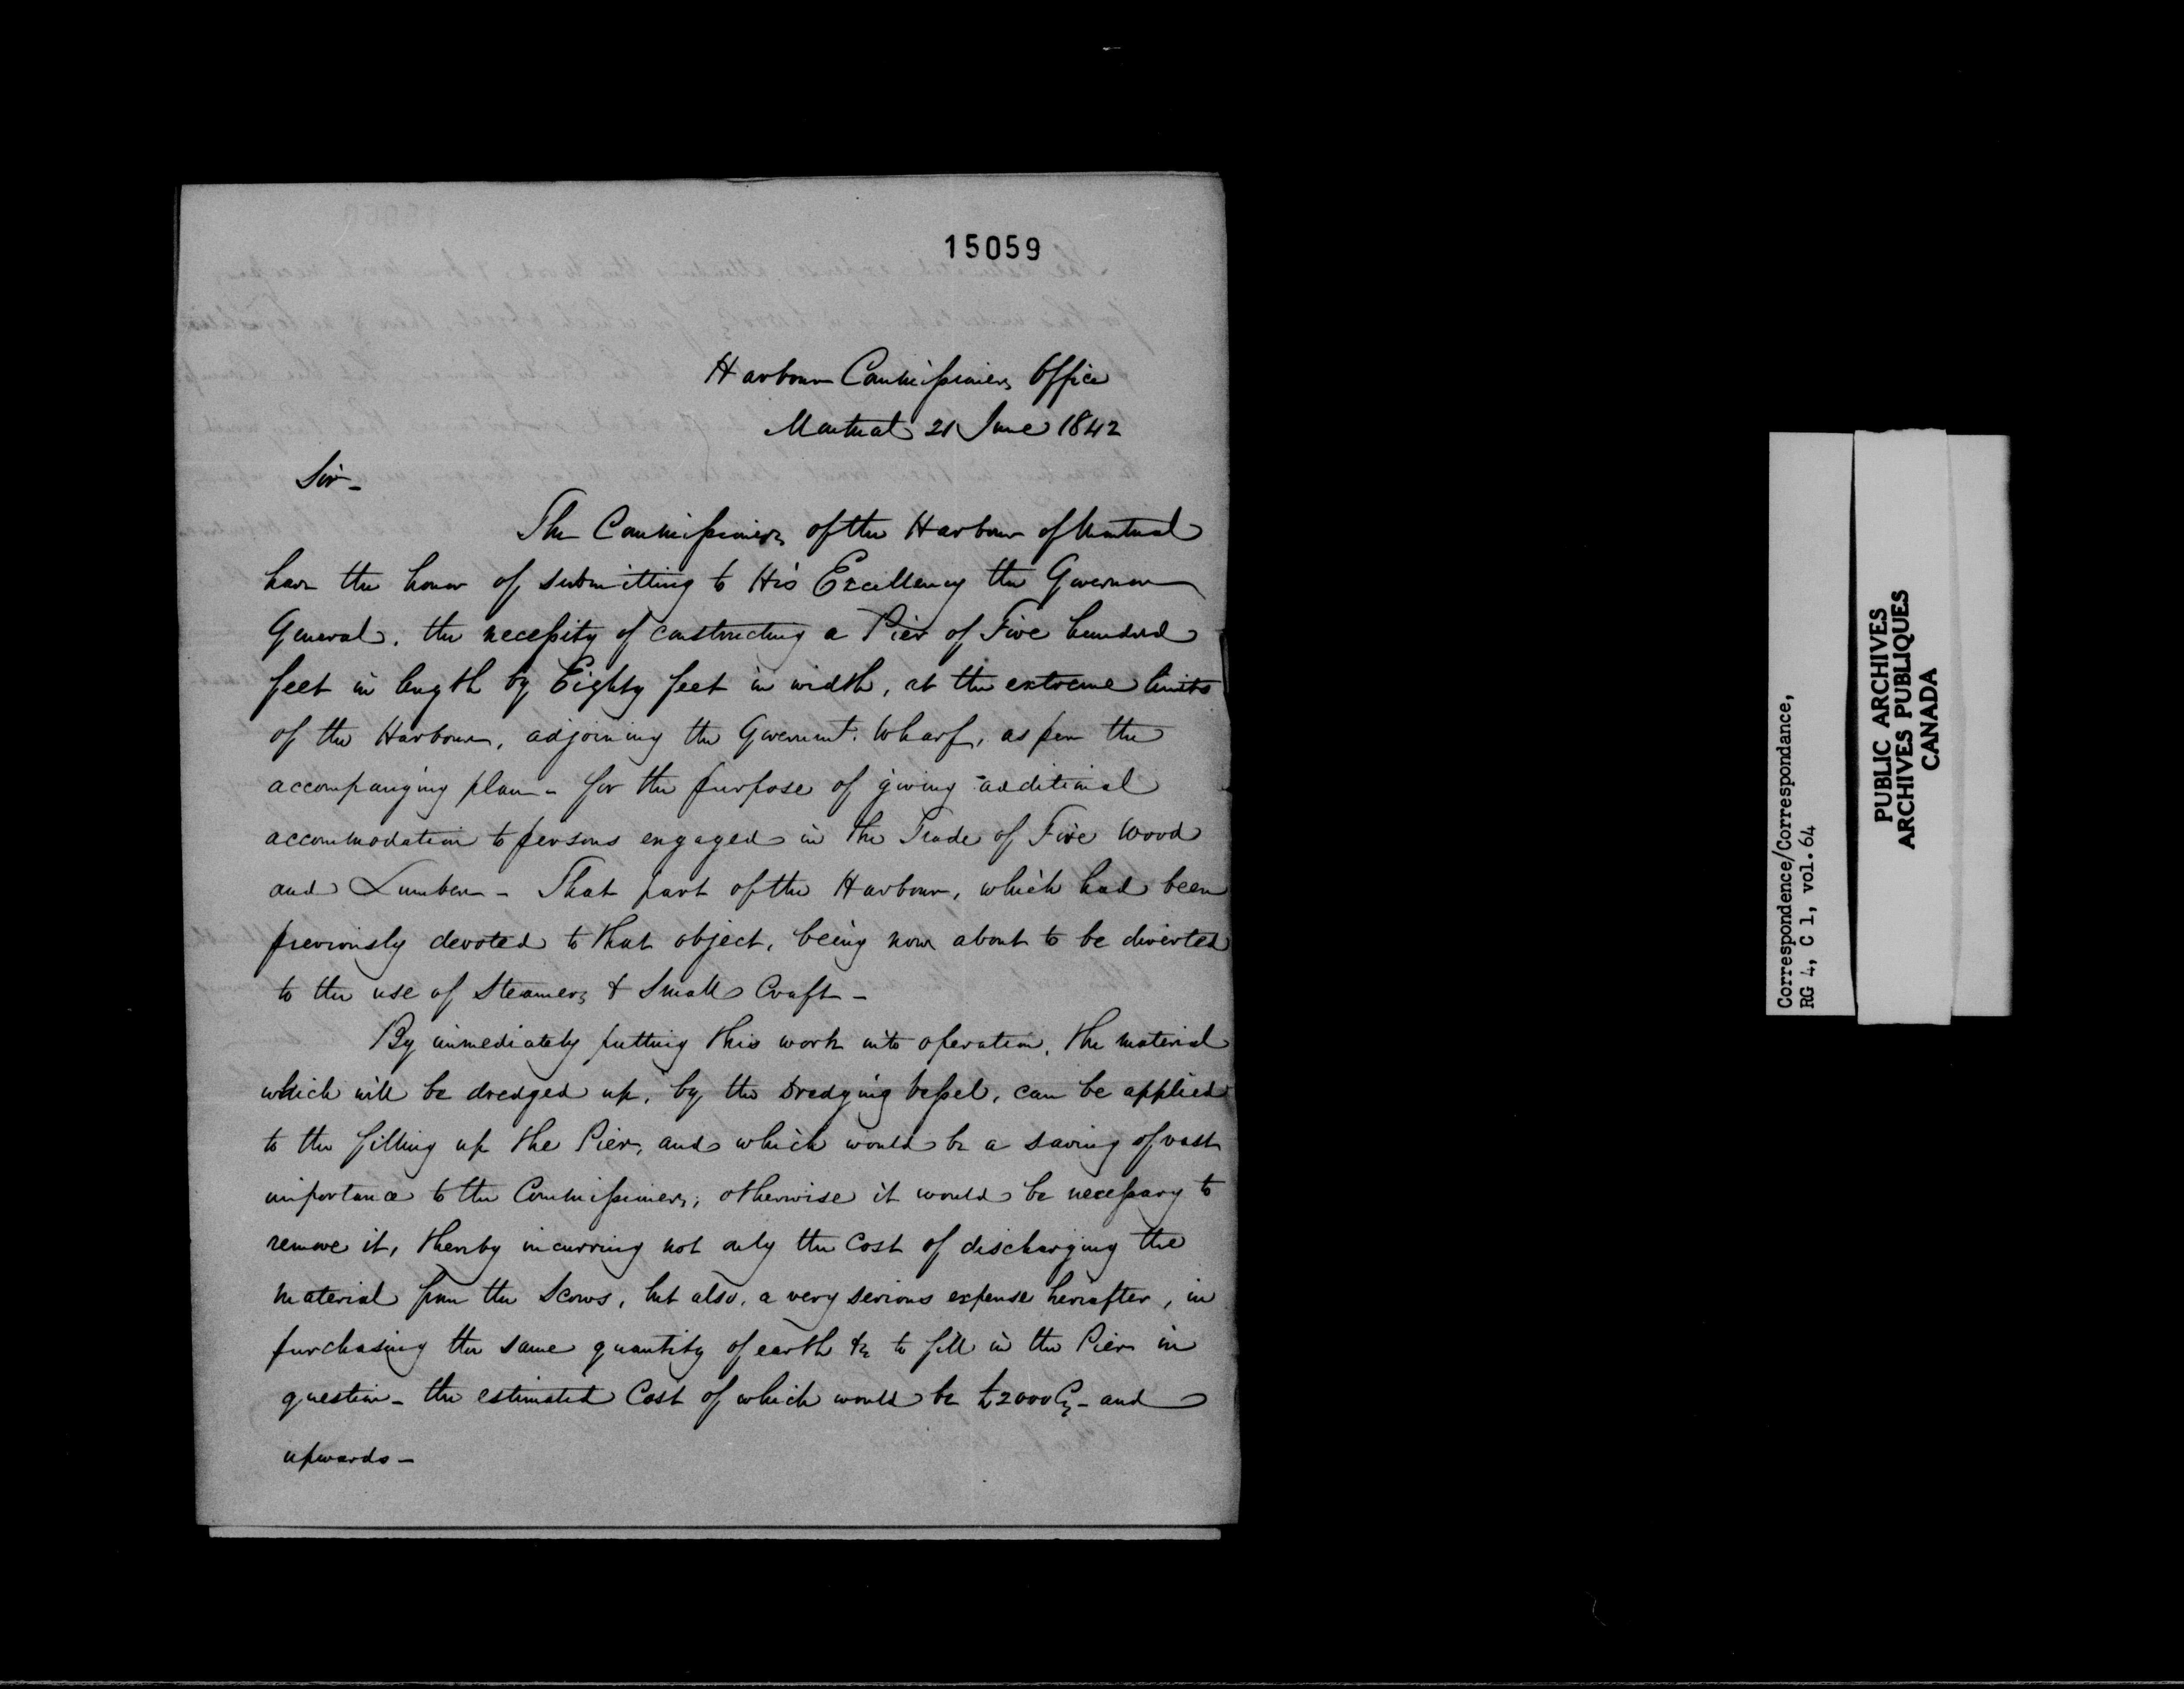 15059
Harbour Commissioners Office
Montreal 21 June 1842
Sir -
The Commissioners of the Harbour of Montreal
have the honor of submitting to His Excellency the Governor
General, the necessity of constructing a Pier of Five hundred
feet in length by Eighty feet in width, at the extreme limits
of the Harbour, adjoining the Governmt. Wharf, as per the
accompanying plan - for the purpose of giving additional
accommodation to persons engaged in the Trade of Fire Wood
and Lumber - That part of the Harbour, which had been
previously devoted to that object, being now about to be diverted
to the use of Steamers & Small Craft -
By immediately putting this work into operation, the material
which will be dredged up, by the Dredging Vessel, can be applied
to the filling up the Pier, and which would be a saving of vast
importance to the Commissioners, otherwise it would be necessary to
remove it, thereby incurring not only the Cost of discharging the
material from the Scows, but also, a very serious expense hereafter, in
purchasing the same quantity of earth &c to fill in the Pier in
question - the estimated Cost of which would be £2000 Cy - and
upwards -
Correspondence/Correspondance,
RG 4, C 1, vol. 64
PUBLIC ARCHIVES
ARCHIVES PUBLIQUES
CANADA